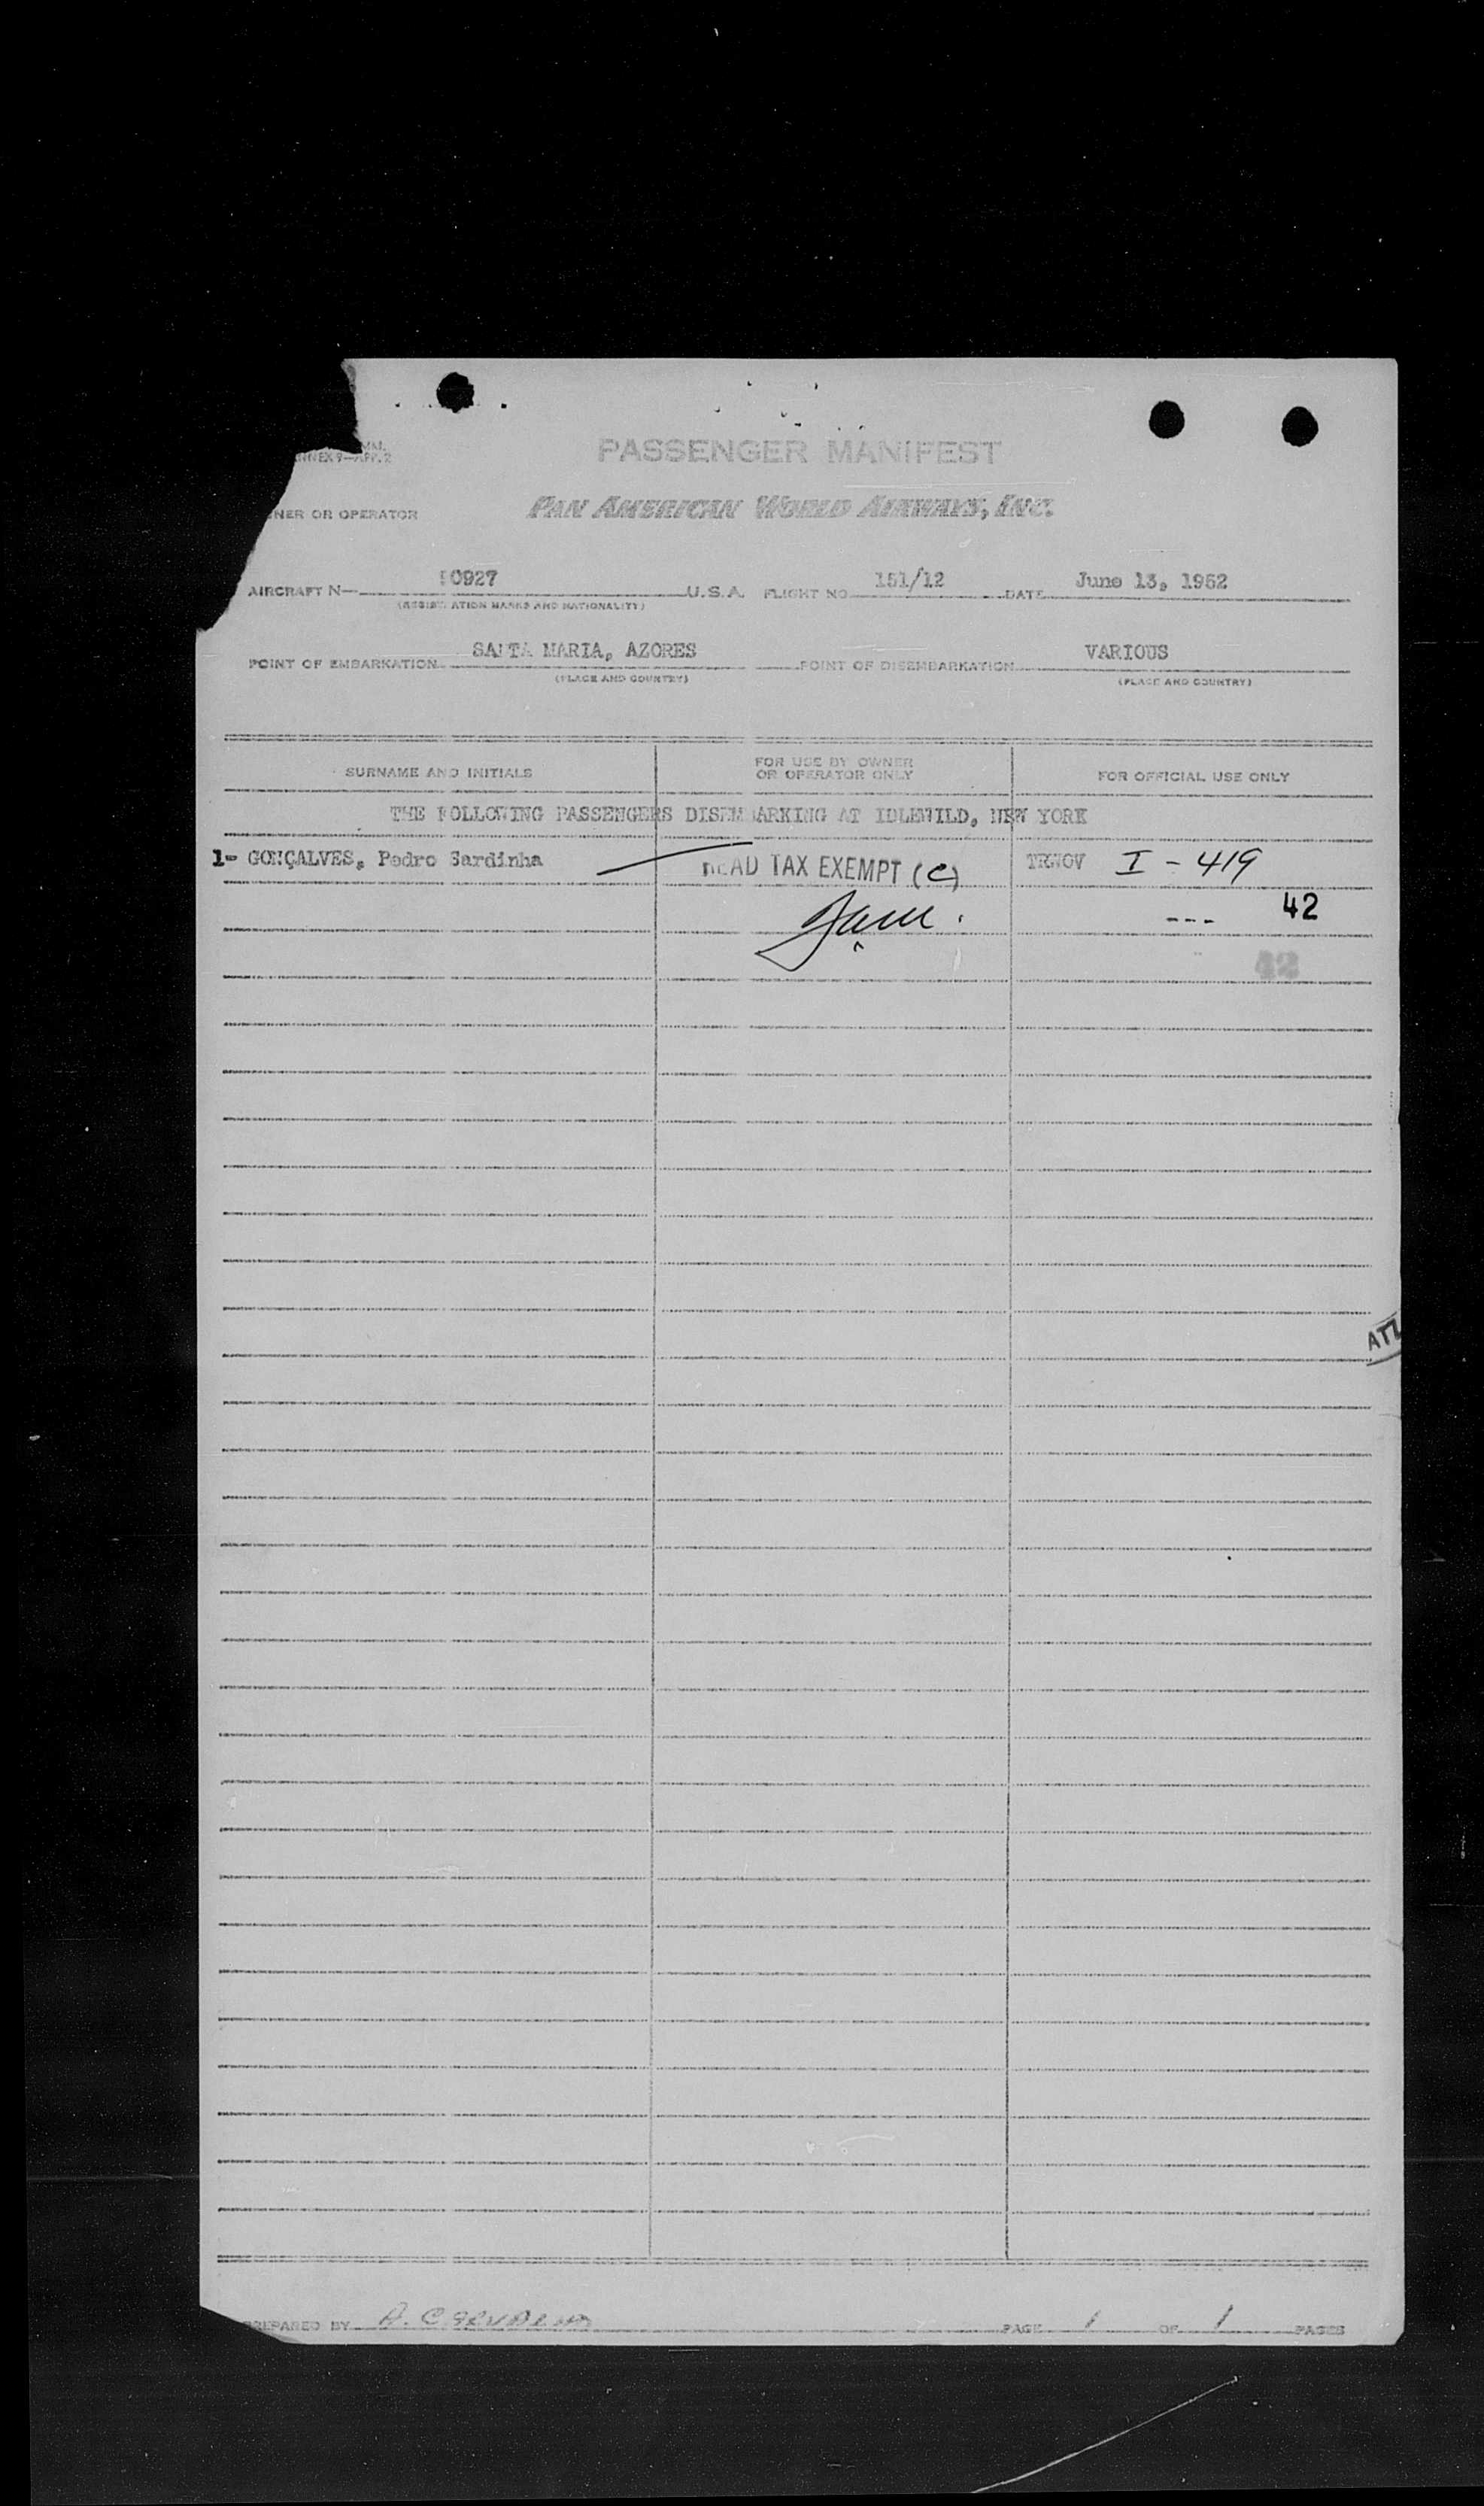 ANNEX 9—APP. 2
PASSENGER MANIFEST
OWNER OR OPERATOR PAN AMERICAN WORLD AIRWAYS, INC.
AIRCRAFT N— 0927 U.S.A. FLIGHT NO. 151/12 DATE June 13, 1952
(REGISTRATION MARKS AND NATIONALITY)
POINT OF EMBARKATION SANTA MARIA, AZORES POINT OF DISEMBARKATION VARIOUS
(PLACE AND COUNTRY) (PLACE AND COUNTRY)
SURNAME AND INITIALS FOR USE BY OWNER OR OPERATOR ONLY FOR OFFICIAL USE ONLY
THE FOLLOWING PASSENGERS DISEMBARKING AT IDLEWILD, NEW YORK
1- GONÇALVES, Pedro Sardinha HEAD TAX EXEMPT (C) TRWOV I - 419
--- 42
42
ATL
PREPARED BY A. CARVALHO PAGE 1 OF 1 PAGES